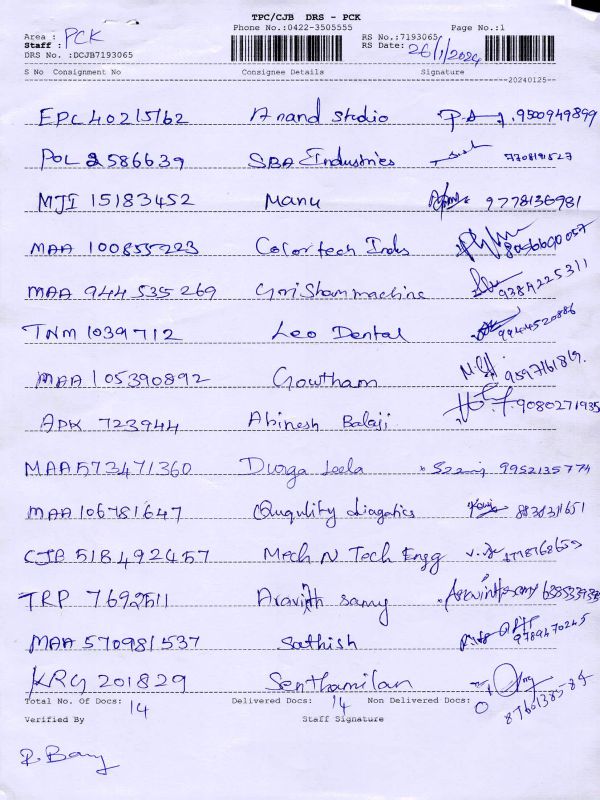 TPC/CJB DRS - PCK
Phone No.:0422-3505555 Page No.:1
Area : PCK RS No.:7193065
Staff : RS Date: 26/1/2024
DRS No. :DCJB7193065
S No Consignment No Consignee Details Signature
20240125
EPC 40215162 Anand Studio 9500949899
POL 2586639 SBA Industries 7708191527
MJI 15183452 Manu 9778136981
MAA 100855223 Colortech Inds
MAA 944535269 Gori Sham machine 9384225311
TNM 1039712 Leo Dental 9944520886
MAA 105390892 Gowtham 9597161819.
APK 723944 Abinesh Balaji 9080271935
MAA 573471360 Durga Leela 9952135774
MAA 106781647 Ququlity diagatics
CJB 518492457 Mech N Tech Engg
TRP 7692511 Aravinth samy
MAA 570981537 Sathish 9789470245
KRG 201829 Senthamilan 8760138584
Total No. Of Docs: 14 Delivered Docs: 14 Non Delivered Docs: 0
Verified By Staff Signature